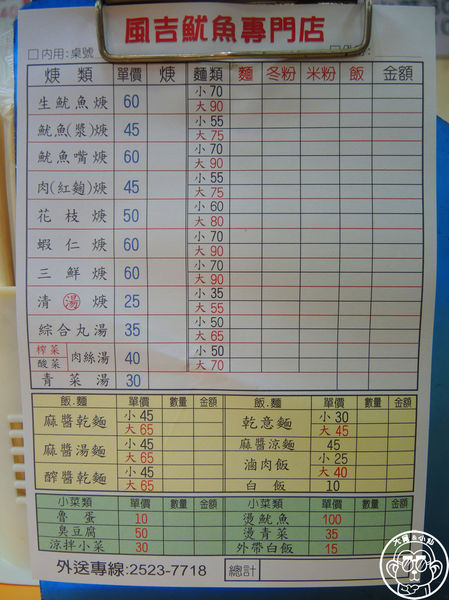 風吉魷魚專門店
□內用:桌號
焿類 單價 焿 麵類 麵 冬粉 米粉 飯 金額
生魷魚焿 60 小70 大90
魷魚(漿)焿 45 小55 大75
魷魚嘴焿 60 小70 大90
肉(紅麴)焿 45 小55 大75
花枝焿 50 小60 大80
蝦仁焿 60 小70 大90
三鮮焿 60 小70 大90
清湯焿 25 小35 大55
綜合丸湯 35 小50 大65
榨菜 酸菜 肉絲湯 40 小50 大70
青菜湯 30
飯.麵 單價 數量 金額 飯.麵 單價 數量 金額
麻醬乾麵 小45 大65 乾意麵 小30 大45
麻醬湯麵 小45 大65 麻醬涼麵 45
滷肉飯 小25 大40
醡醬乾麵 小45 大65 白飯 10
小菜類 單價 數量 金額 小菜類 單價 數量 金額
魯蛋 10 燙魷魚 100
臭豆腐 50 燙青菜 35
涼拌小菜 30 外帶白飯 15
外送專線:2523-7718 總計